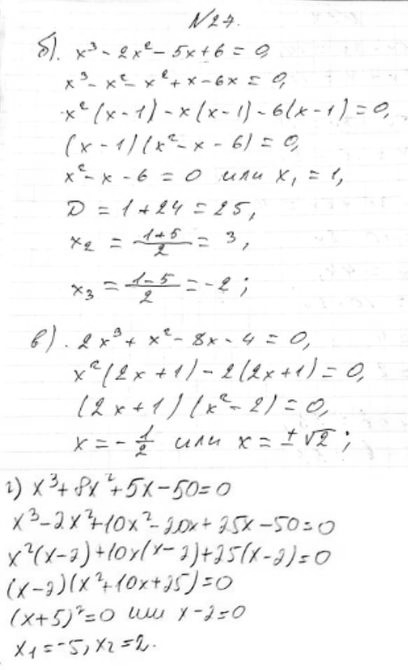 №27.
б). x³ - 2x² - 5x + 6 = 0,
x³ - x² - x² + x - 6x = 0,
x²(x - 1) - x(x - 1) - 6(x - 1) = 0,
(x - 1)(x² - x - 6) = 0,
x² - x - 6 = 0 или x₁ = 1,
D = 1 + 24 = 25,
x₂ = (1+5)/2 = 3,
x₃ = (1-5)/2 = -2;
в). 2x³ + x² - 8x - 4 = 0,
x²(2x + 1) - 2(2x + 1) = 0,
(2x + 1)(x² - 2) = 0,
x = -1/2 или x = ±√2;
г) x³ + 8x² + 5x - 50 = 0
x³ - 2x² + 10x² - 20x + 25x - 50 = 0
x²(x - 2) + 10x(x - 2) + 25(x - 2) = 0
(x - 2)(x² + 10x + 25) = 0
(x + 5)² = 0 или x - 2 = 0
x₁ = -5, x₂ = 2.